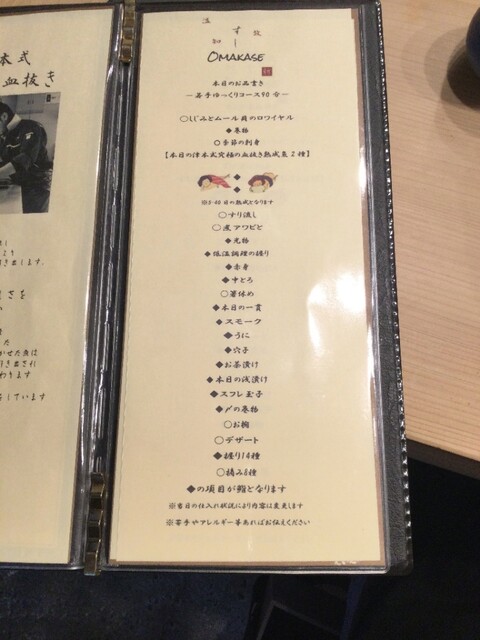 本式
血抜き
す
し
OMAKASE
本日のお品書き
—苦手ゆっくりコース90分—
○しじみとムール貝のロワイヤル
◆巻物
○季節の刺身
【本日の津本式究極の血抜き熟成魚2種】
○すり流し
○煮アワビと
◆光物
◆低温調理の握り
◆赤身
◆中とろ
○箸休め
◆本日の一貫
◆スモーク
◆うに
◆穴子
◆お茶漬け
◆本日の浅漬け
◆スフレ玉子
◆〆の巻物
○お椀
○デザート
◆握り14種
○摘み8種
◆の項目が鮨となります
※当日の仕入れ状況により内容は変更します
※苦手やアレルギー等あればお伝えください